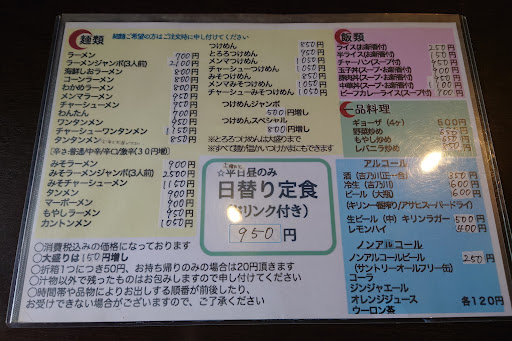 麺類
細麺ご希望の方はご注文時に申し付けてください
ラーメン 700円
ラーメンジャンボ(3人前) 2100円
海鮮しおラーメン 800円
コーンラーメン 800円
わかめラーメン 800円
メンマラーメン 950円
チャーシューメン 950円
わんたん 700円
ワンタンメン 950円
チャーシューワンタンメン 1150円
タンタンメン 850円
[辛さ普通/中辛/辛口/激辛(30円増)]
みそラーメン 900円
みそラーメンジャンボ(3人前) 2500円
みそチャーシューメン 1150円
タンメン 900円
マーボーメン 900円
もやしラーメン 950円
カントンメン 1050円
つけめん 850円
とろろつけめん 950円
メンマつけめん
チャーシューつけめん
みそつけめん
メンマみそつけめん
チャーシューみそつけめん
つけめんジャンボ
500円増し
つけめんスペシャル
800円増し
※とろろつけめんは大盛りまで
※すべて麺が温かいつけめんもできます
☆平日昼のみ
日替り定食
(ドリンク付き)
950円
〇消費税込みの価格になっております
〇大盛りは150円増し
〇折箱1つにつき50円、お持ち帰りのみの場合は20円頂きます
〇汁物以外で残ったものはお包みしますので申し付けてください
〇時間帯や品物によりお出しする順番が前後したり、
お受けできない場合がございますので、ご了承ください
飯類
ライス(お新香付) 250円
半ライス(お新香付) 150円
チャーハン(スープ付)
玉子丼(スープ・お新香付)
豚肉丼(スープ・お新香付)
中華丼(スープ・お新香付)
ビーフカレーライス(スープ付) 700円
一品料理
ギョーザ(4ケ) 500円
野菜炒め 650円
もやし炒め 650円
レバニラ炒め
アルコール
酒(吉乃川正一合) 350円
冷生(吉乃川) 600円
ビール(大瓶) 600円
(キリン一番搾り/アサヒスーパードライ)
生ビール(中)キリンラガー 500円
レモンハイ 400円
ノンアルコール
ノンアルコールビール 250円
(サントリーオールフリー缶)
コーラ
ジンジャエール
オレンジジュース 各120円
ウーロン茶